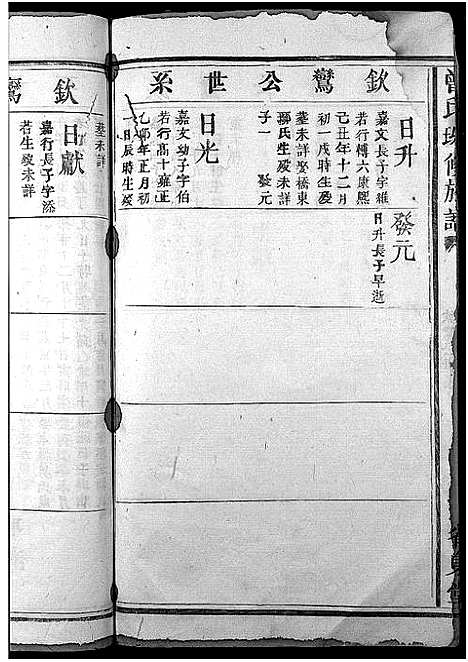 曾氏
修族譜
欽鸞公世系
日升
嘉文長子字維
若行傳六康熙
己丑年十二月
初一戌時生歿
葬未詳娶橋東
孫氏生歿未詳
子一　發元
發元
日升長子早逝
日光
嘉文幼子字伯
若行高十雍正
乙卯年正月初
一日辰時生歿
葬未詳
欽鸞
日獻
嘉行長子字添
若生歿未詳